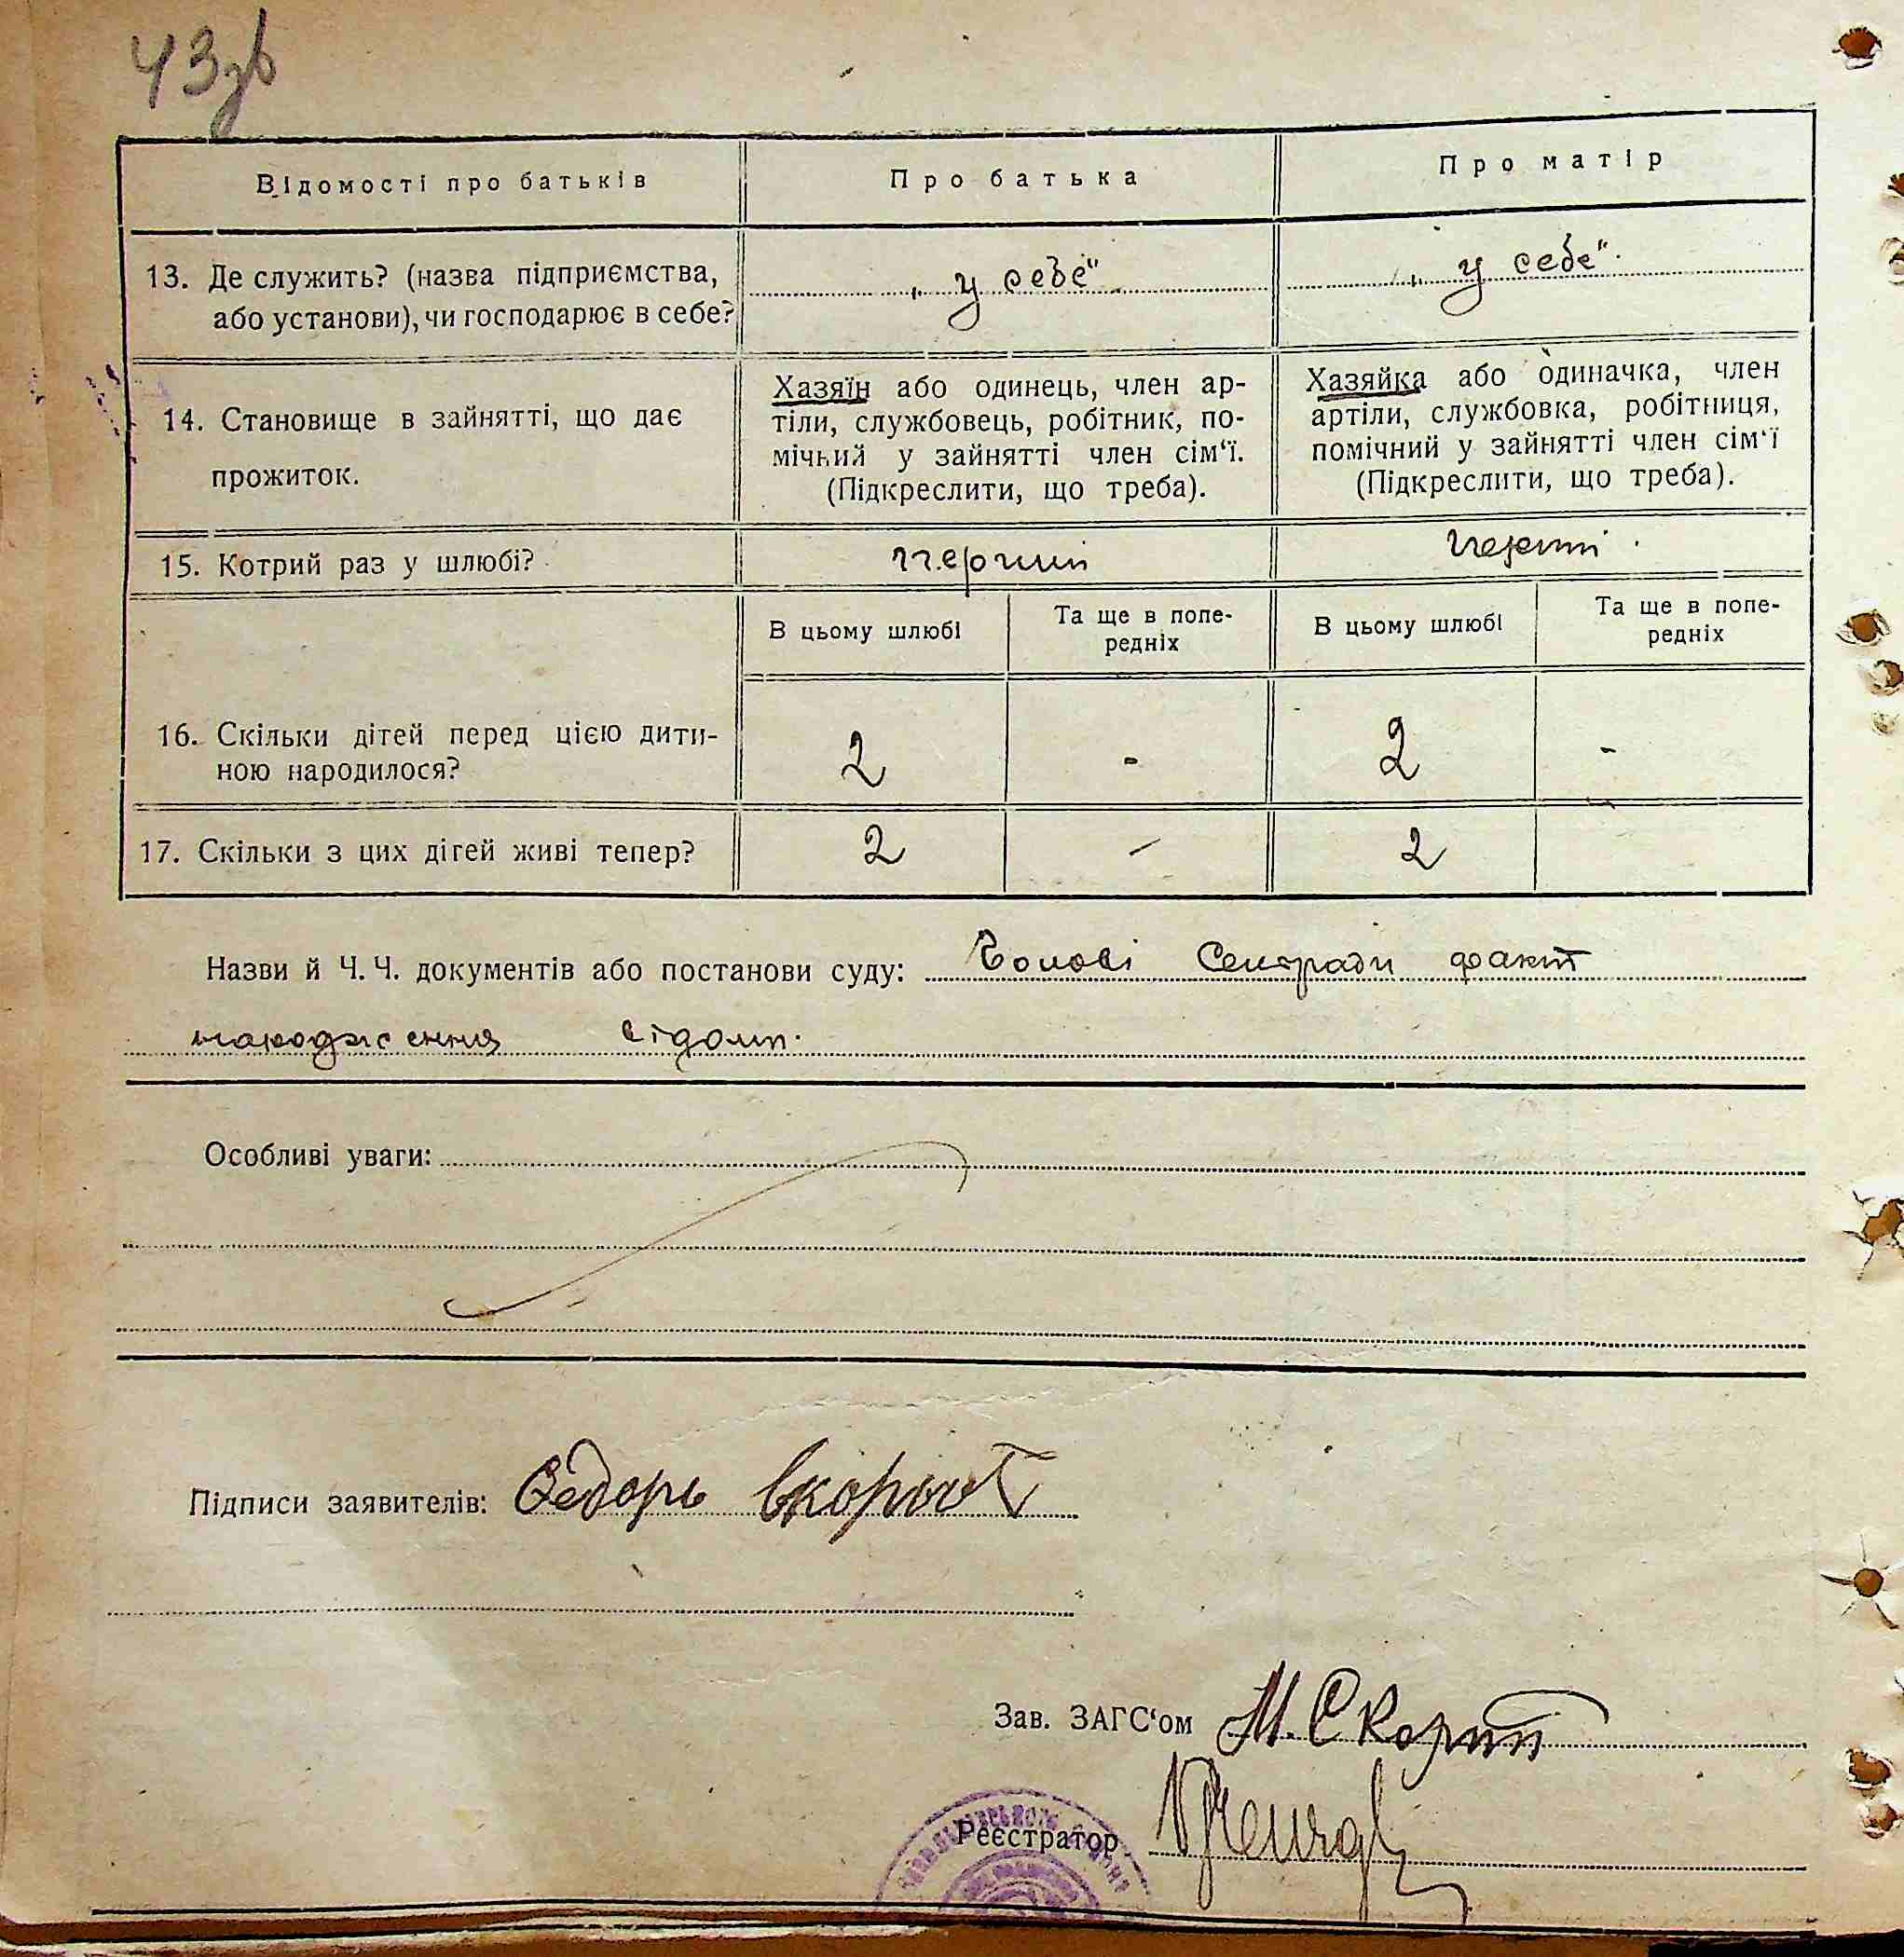 43зв
Відомості про батьків
Про батька
Про матір
13. Де служить? (назва підприємства,
або установи), чи господарює в себе?
„у себе“
„у себе“
14. Становище в зайнятті, що дає
прожиток.
Хазяїн або одинець, член ар-
тіли, службовець, робітник, по-
мічний у зайнятті член сім‘ї.
(Підкреслити, що треба).
Хазяйка або одиначка, член
артіли, службовка, робітниця,
помічний у зайнятті член сім‘ї
(Підкреслити, що треба).
15. Котрий раз у шлюбі?
перший
В цьому шлюбі
Та ще в попе-
редніх
В цьому шлюбі
Та ще в попе-
редніх
16. Скільки дітей перед цією дити-
ною народилося?
2 - 2 -
17. Скільки з цих дітей живі тепер?
2 - 2
Назви й Ч. Ч. документів або постанови суду: Голові Сельради факт
народження відом.
Особливі уваги:
Підписи заявителів: Федорь Скорых
Зав. ЗАГС‘ом М. Скорый
Реєстратор